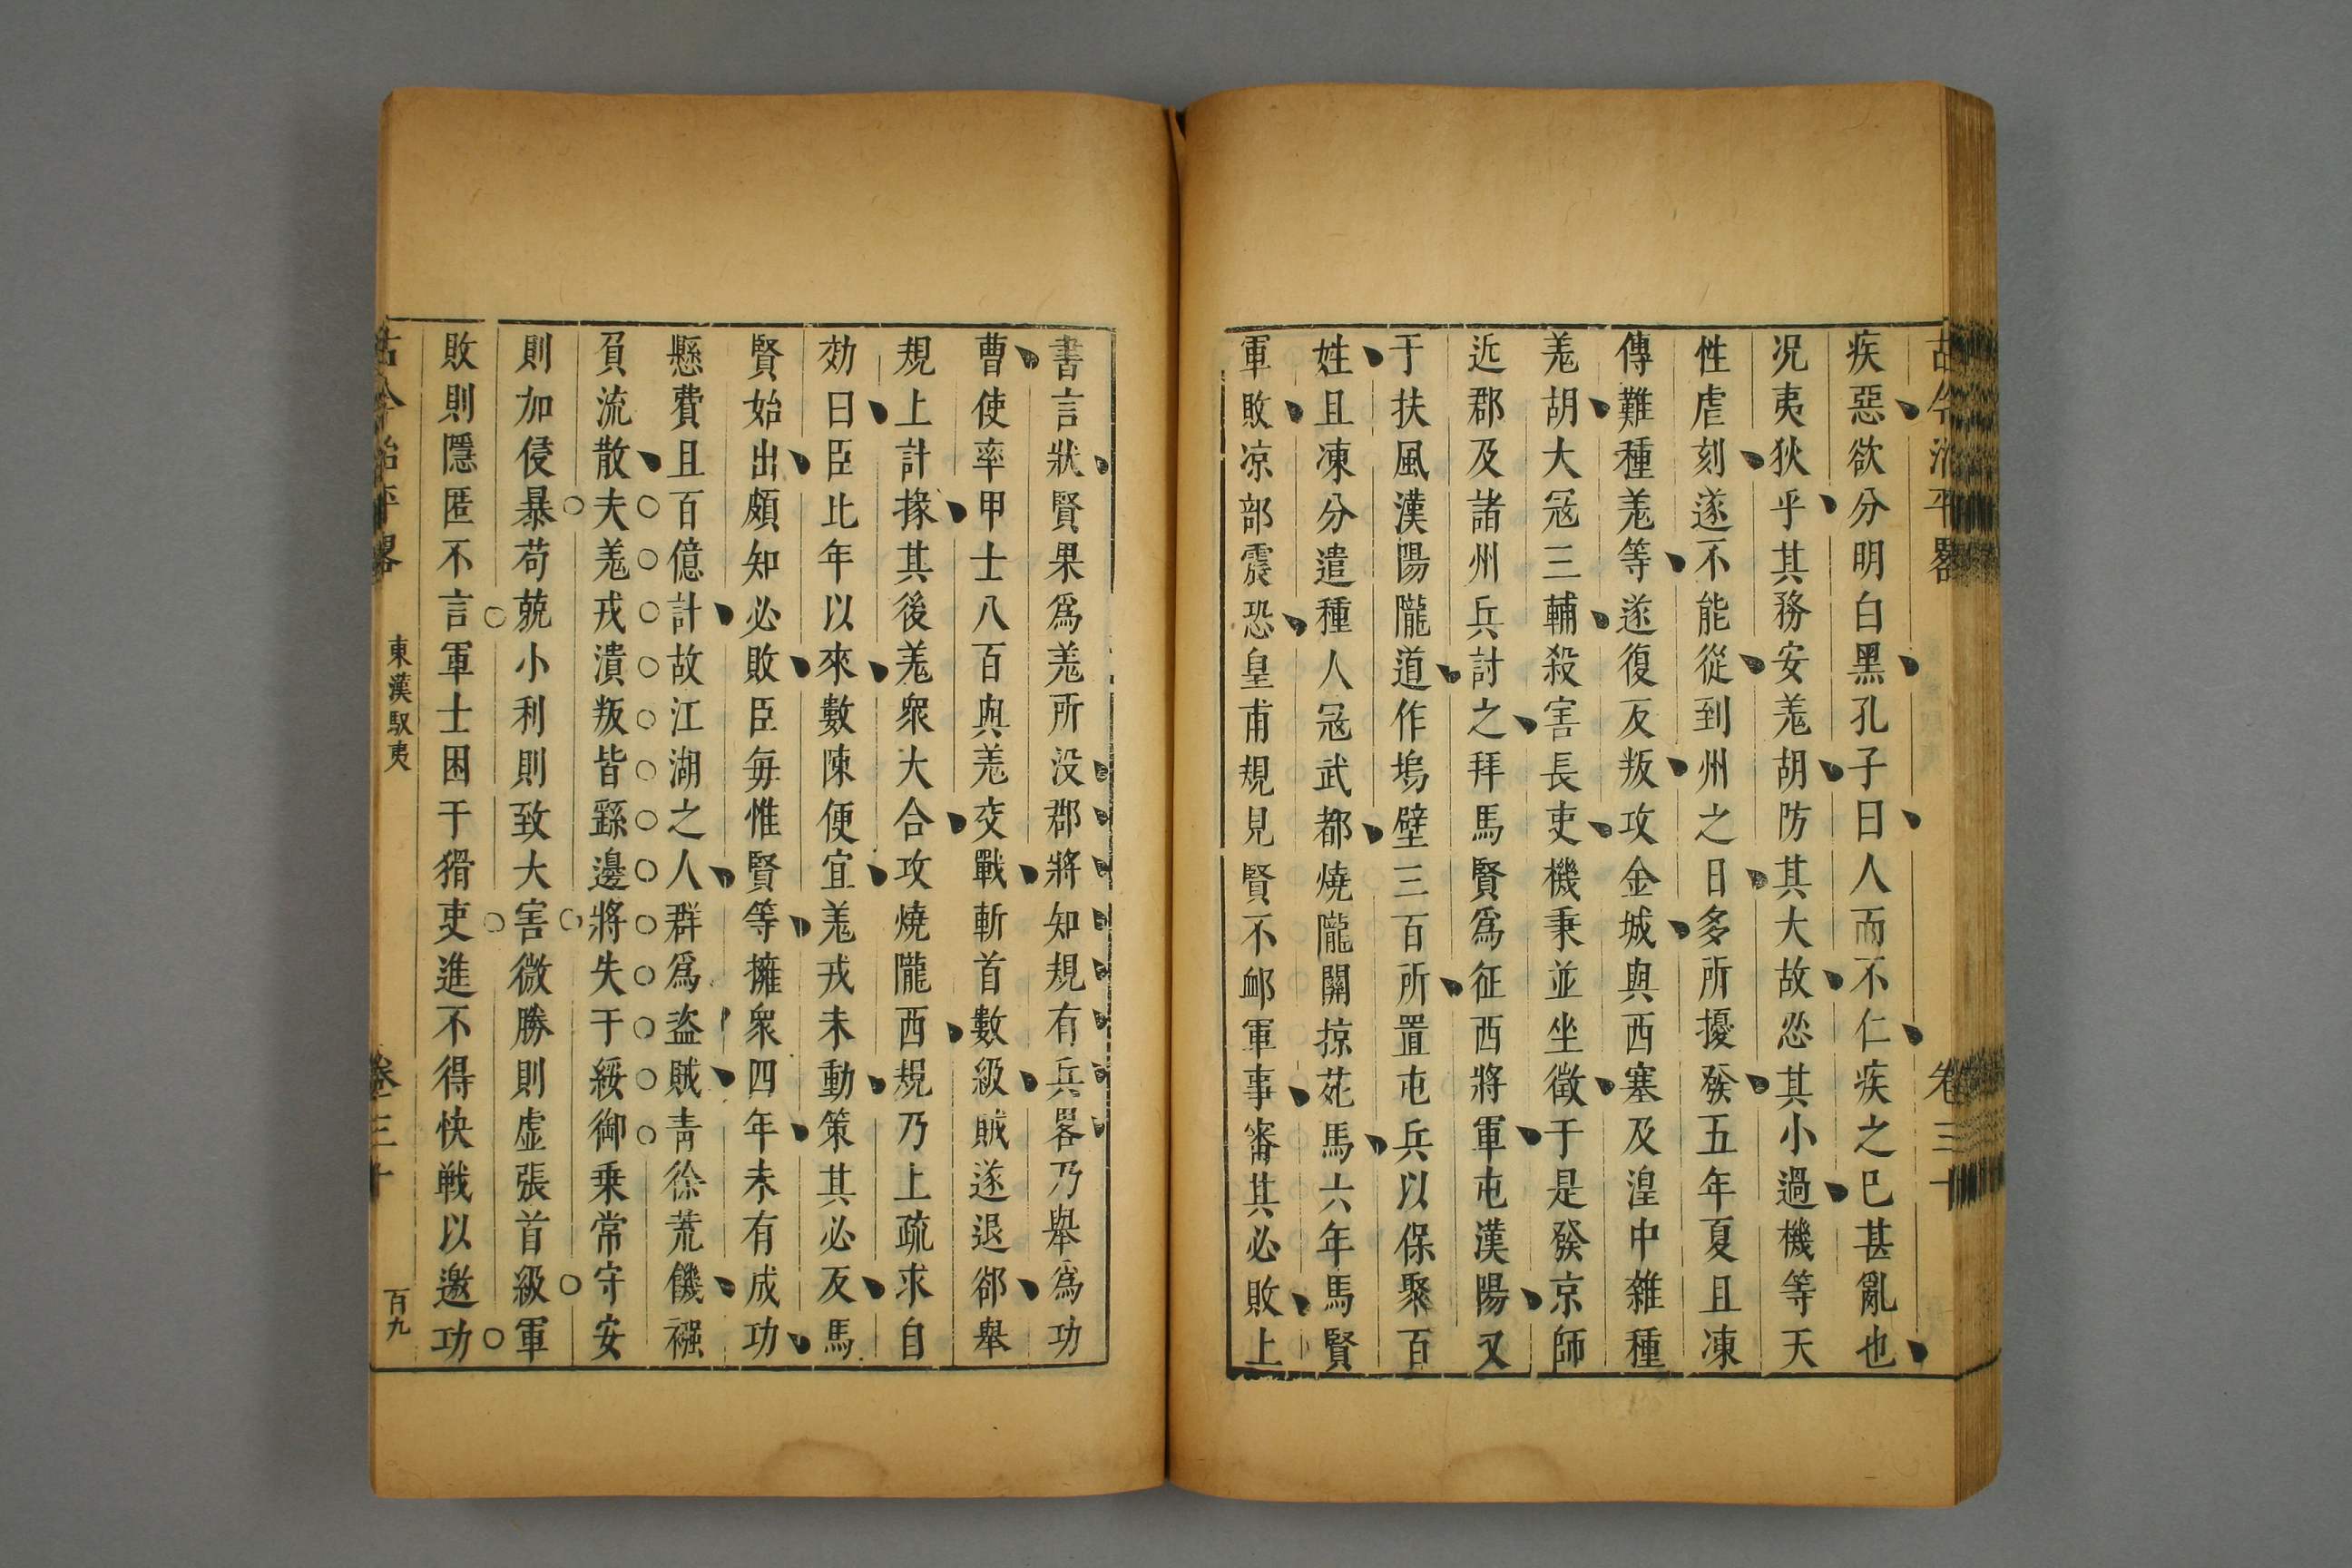 古今治平畧 卷三十
疾惡欲分明白黑孔子曰人而不仁疾之巳甚亂也
况夷狄乎其務安羗胡防其大故忍其小過機等天
性虐刻遂不能從到州之日多所擾發五年夏且凍
傳難種羗等遂復反叛攻金城與西塞及湟中雜種
羗胡大冦三輔殺害長吏機秉並坐徵于是發京師
近郡及諸州兵討之拜馬賢爲征西將軍屯漢陽又
于扶風漢陽隴道作塢壁三百所置屯兵以保聚百
姓且凍分遣種人冦武都燒隴關掠苑馬六年馬賢
軍敗凉部震恐皇甫規見賢不衈軍事審其必敗上
書言狀賢果爲羗所没郡將知規有兵畧乃舉爲功
曹使率甲士八百與羗交戰斬首數級賊遂退郤舉
規上計掾其後羗衆大合攻燒隴西規乃上疏求自
効曰臣比年以來數陳便宜羗戎未動策其必反馬
賢始出頗知必敗臣毎惟賢等擁衆四年未有成功
懸費且百億計故江湖之人群爲盗賊青徐荒饑襁
負流散夫羗戎潰叛皆繇邊將失于綏御乗常守安
則加侵暴苟兢小利則致大害微勝則虚張首級軍
敗則隱匿不言軍士困于猾吏進不得快戰以邀功
古今治平畧 東漢馭夷 卷三十 百九